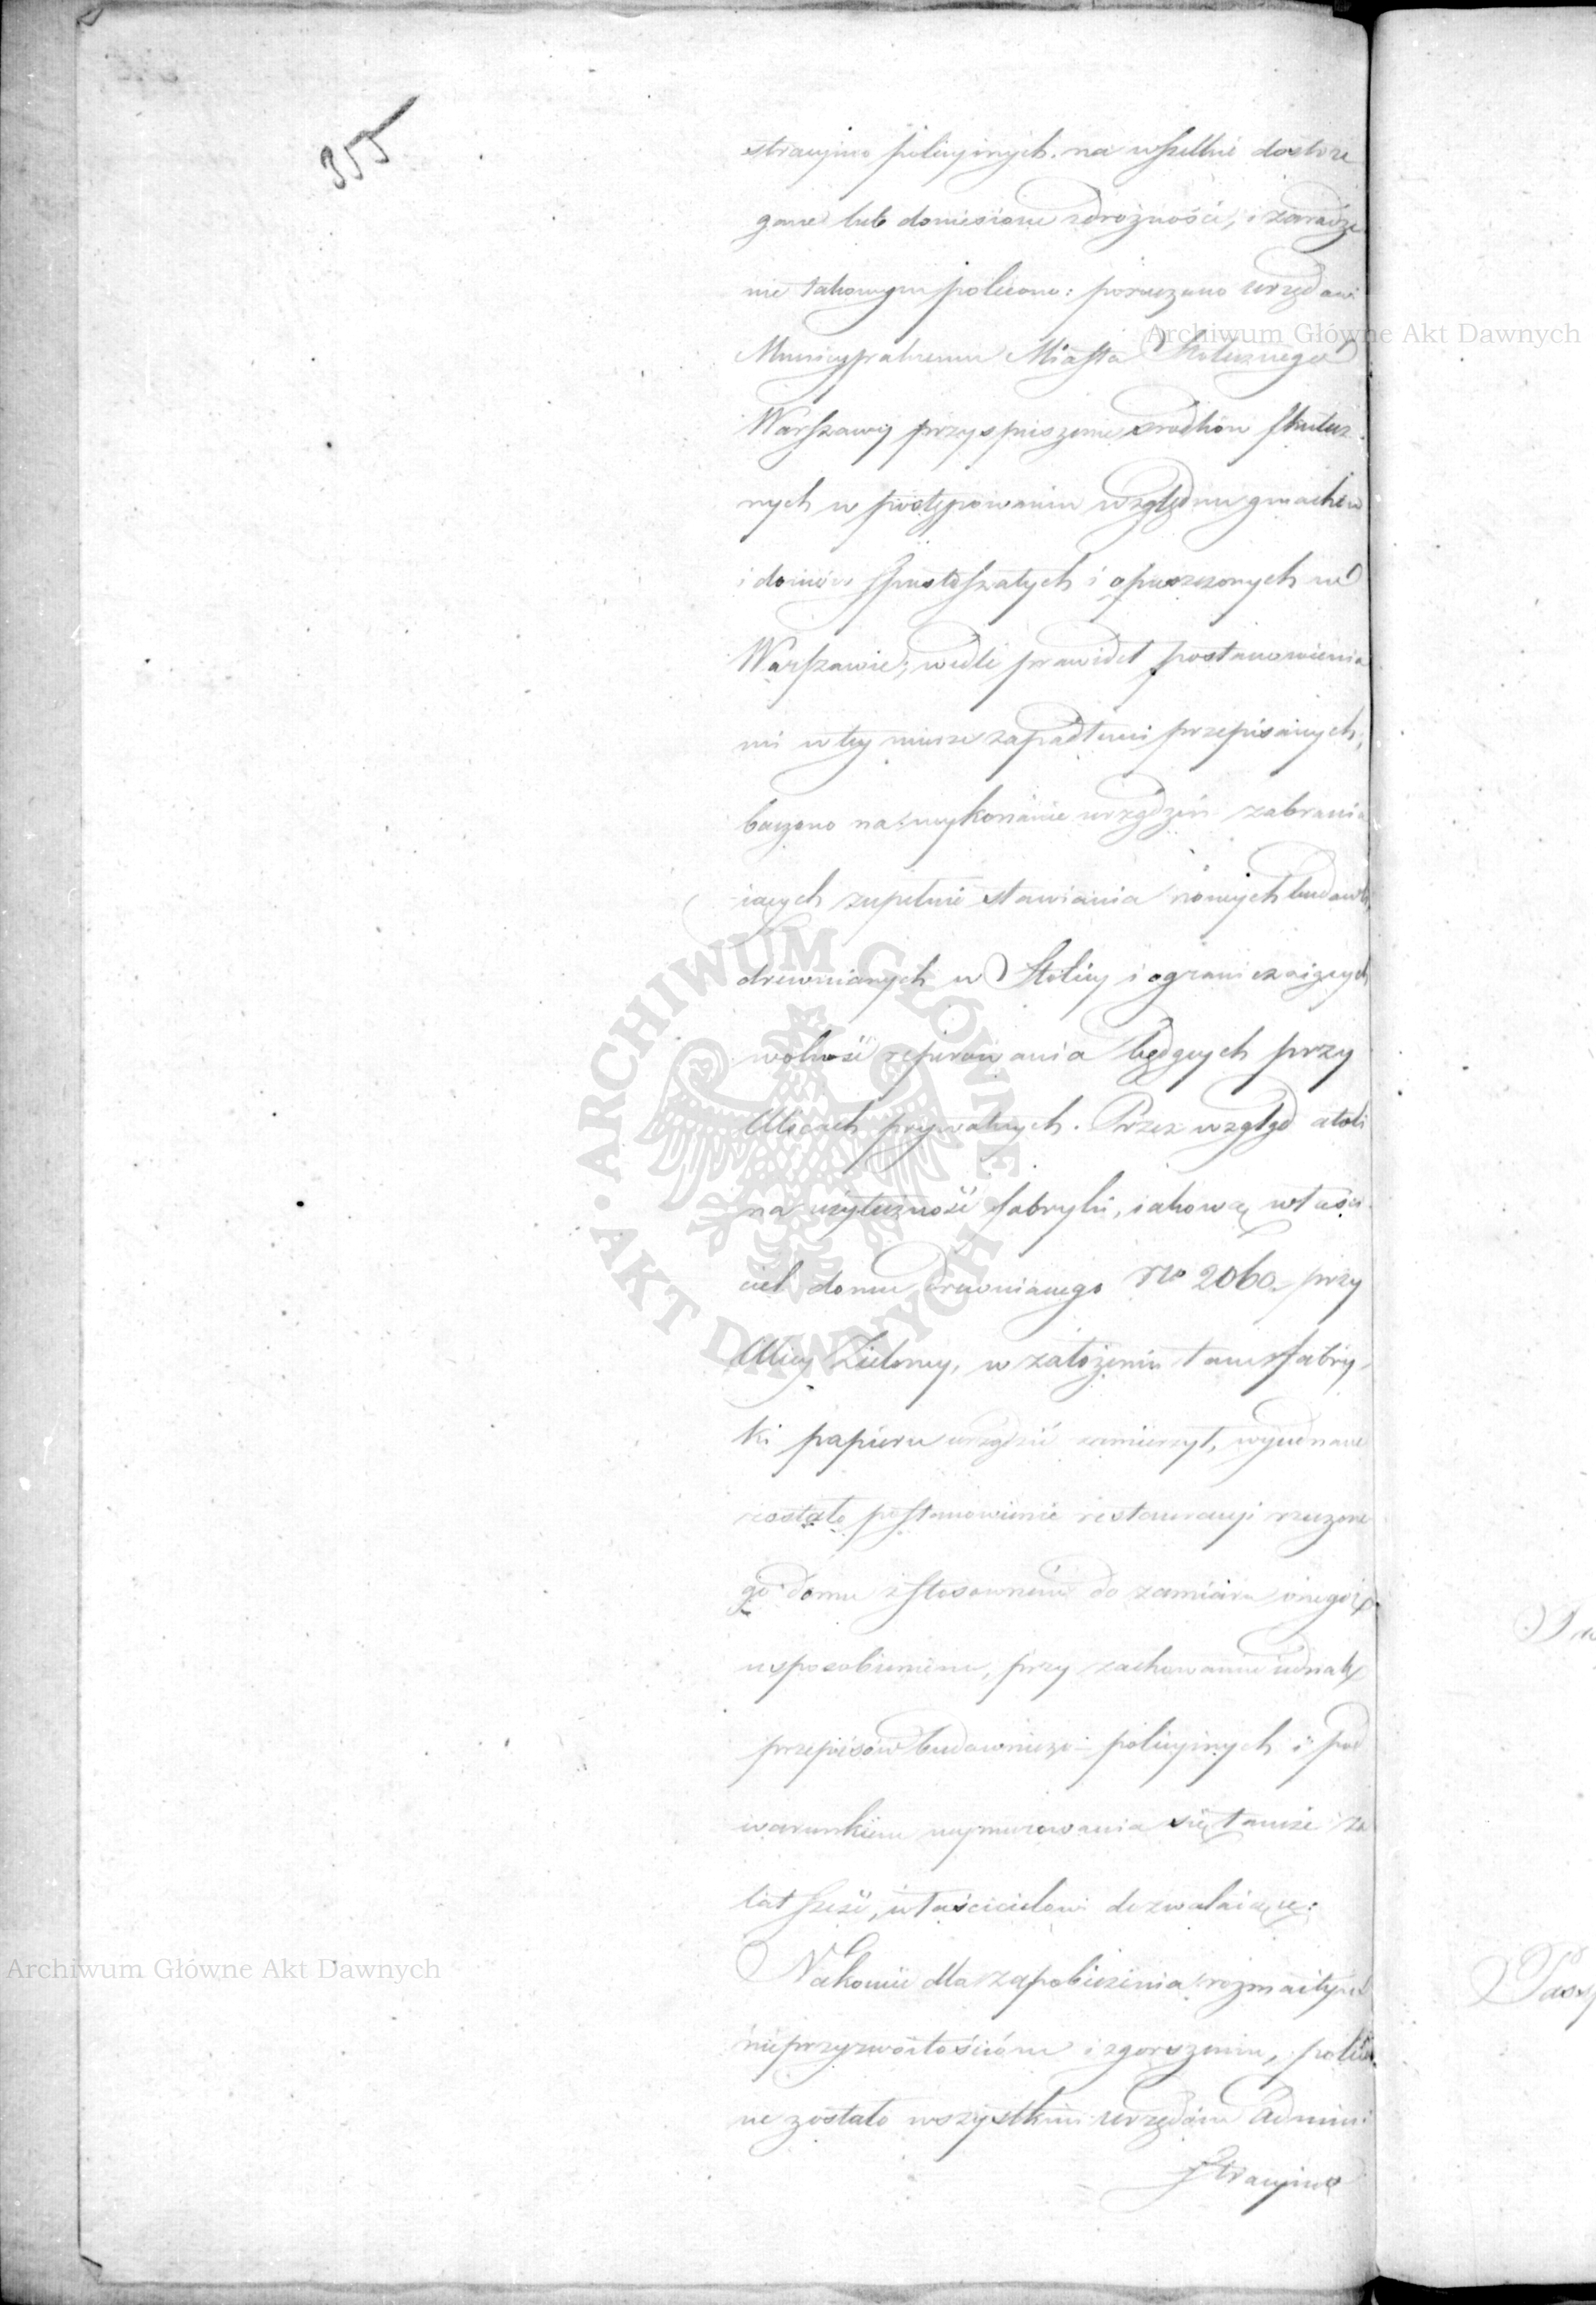 355
stracyino policyinych. na wszelkie dostrze
gane lub doniesione zdrożności, i zaradze
nie takowym polecono: poruczano urzędowi
Municypalnemu Miasta Stołecznego
Warszawy przyspieszenie srodków skutecz
nych w postępowaniu względem gmachów
i domów spustoszałych i opuszczonych w
Warszawie; wedle prawideł postanowienia
mi w tey mierze zapadłemi przepisanych,
baczono na wykonanie urządzeń zabrania
iących zupełnie stawiania nowych budowli
drewnianych w Stolicy i ograniczaiących
wolność reperowania będących przy
Ulicach prywatnych. Przez wzgląd atoli
na użyteczność fabryki, iakową właści
ciel domu drewnianego No 2060. przy
Ulicy Zieloney, w założeniu tamże fabry,
ki papieru urządzić zamierzył, wyiednane
zostało postanowienie restauracyi rzeczone
go domu z stosownem do zamiaru onegoż
usposobieniem, przy zachowaniu iednak
przepisów budowniczo-policyinych i pod
warunkiem wymurowania się tamże za
lat sześć, właścicielowi dozwalaiące.
Nakoniec dla zapobieżenia rozmaitym
nieprzyzwoitościóm i zgorszeniu, poleco
ne zostało wszystkim urzędóm Admini
stracyino
Archiwum Główne Akt Dawnych
Archiwum Główne Akt Dawnych
ARCHIWUM GŁÓWNE · AKT DAWNYCH ·